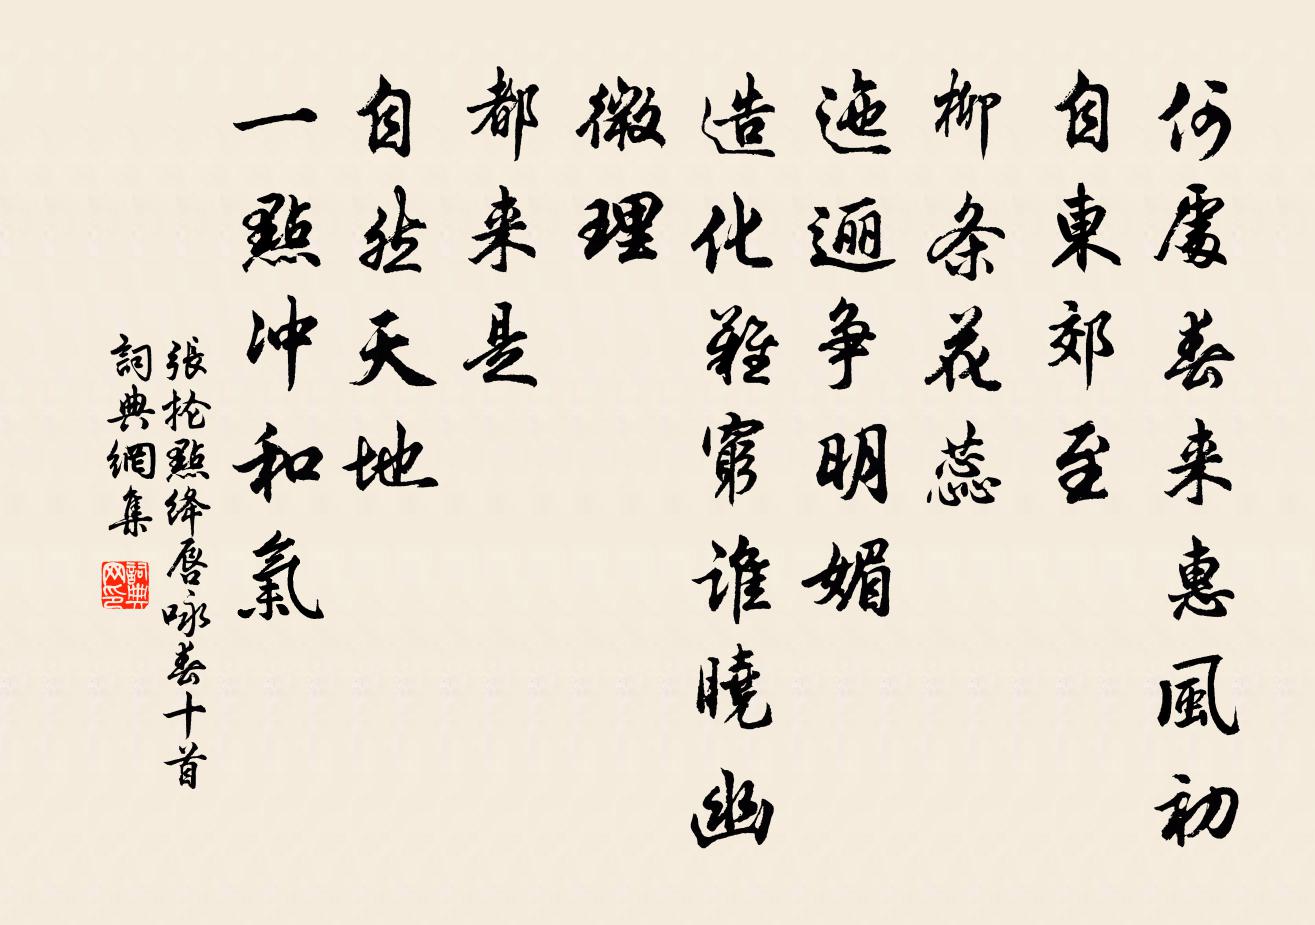 何處春来惠風初
自東郊至
柳条花蕊
迤逦争明媚
造化難窮谁曉幽
微理
都来是
自然天地
一點冲和氣
張抡點绛唇咏春十首
詞典網集
詞典网印